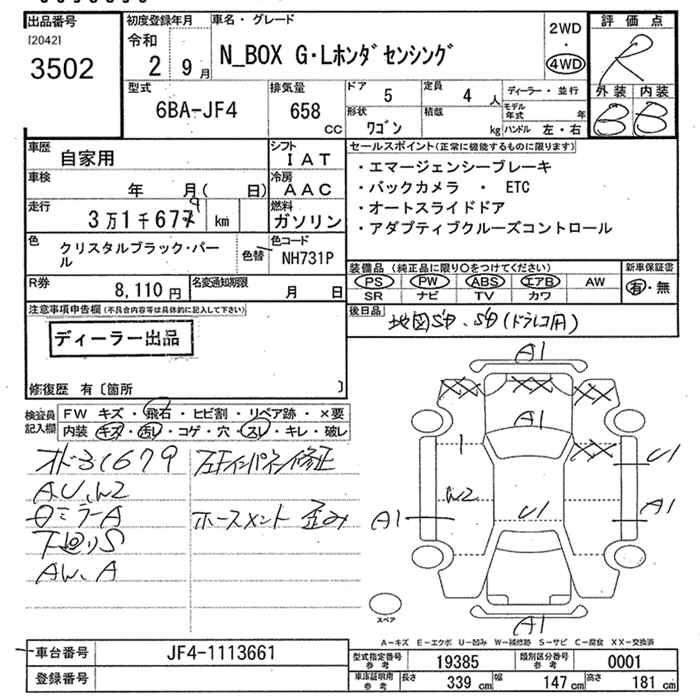 出品番号
[2042]
3502
初度登録年月
令和
2 9月
車名・グレード
N_BOX G・Lホンダセンシング
2WD
・
4WD
評価点
R
外装 内装
B B
型式
6BA-JF4
排気量
658
CC
ドア
5
定員
4 人
形状
ワゴン
積載
kg
ディーラー・並行
モデル年式 年
ハンドル 左・右
車歴
自家用
シフト
IAT
車検
年 月( 日)
冷房
AAC
走行
3万1千677 9 km
燃料
ガソリン
色
クリスタルブラック・パール
色替
色コード
NH731P
R券
8,110円
名変通知期限
月 日
セールスポイント(正常に機能するものに限ります)
・エマージェンシーブレーキ
・バックカメラ ・ ETC
・オートスライドドア
・アダプティブクルーズコントロール
装備品(純正品に限り○をつけてください)
PS PW ABS エアB AW
SR ナビ TV カワ
新車保証書
有・無
後日品
地図SD、SD(ドラレコ用)
注意事項申告欄(不具合内容等は具体的に記入して下さい)
ディーラー出品
修復歴 有〔箇所 〕
検査員記入欄
FW キズ・飛石・ヒビ割・リペア跡・×要
内装 キズ・汚レ・コゲ・穴・スレ・キレ・破レ
オドろ1679
AU、W2
ロミラーA
下廻りS
AW、A
左Fインパネイン修正
ホースメント 歪み
A1
XX
XX
XX
A1
XX
U1
W2
A1
U1
A1
A1
スペア
A-キズ E-エクボ U-凹み W-補修跡 S-サビ C-腐食 XX-交換済
車台番号
JF4-1113661
登録番号
型式指定番号参考
19385
類別区分番号参考
0001
車庫証明用参考
長さ 339 cm 幅 147 cm 高さ 181 cm